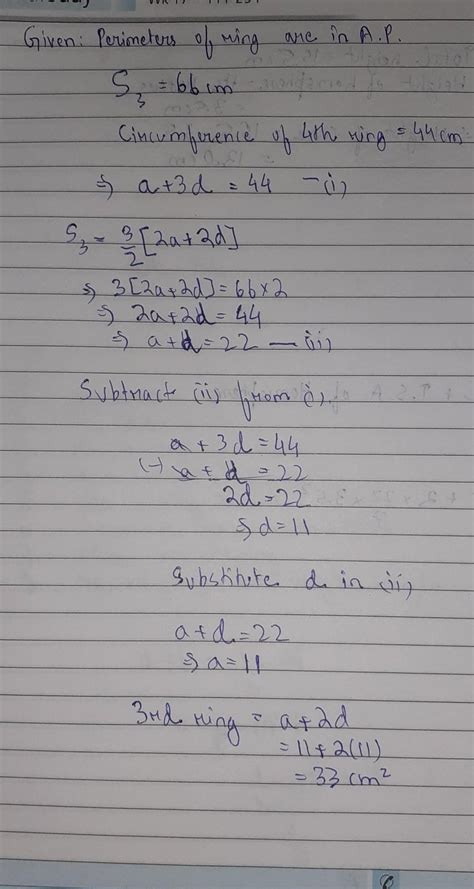 Given: Perimeters of ring are in A.P.
S₃ = 66 cm
Circumference of 4th ring = 44 cm
⇒ a + 3d = 44 — (i)
S₃ = 3/2 [2a + 2d]
⇒ 3[2a + 2d] = 66 × 2
⇒ 2a + 2d = 44
⇒ a + d = 22 — (ii)
Subtract (ii) from (i),
a + 3d = 44
(-) a + d = 22
2d = 22
⇒ d = 11
Substitute d in (ii)
a + d = 22
⇒ a = 11
3rd ring = a + 2d
= 11 + 2(11)
= 33 cm²